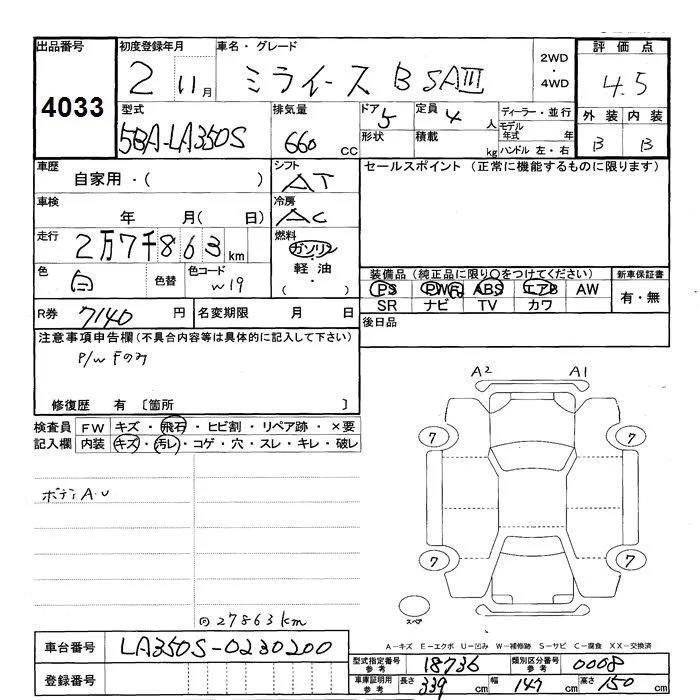 出品番号 4033
初度登録年月 2 11月
車名・グレード ミライース B SAIII
2WD・4WD
評価点 4.5
外装 B 内装 B
型式 5BA-LA350S
排気量 660 CC
ドア 5 形状
定員 4 人 積載 kg
ディーラー・並行
モデル年式 年
ハンドル 左・右
車歴 自家用・( )
シフト AT
セールスポイント (正常に機能するものに限ります)
車検 年 月( 日)
冷房 AC
走行 2万7千863km
燃料 ガソリン・軽油・( )
色 白 色替 色コード W19
装備品 (純正品に限り○をつけてください)
新車保証書 有・無
PS PW ABS エアB AW
SR ナビ TV カワ
R券 7140 円 名変期限 月 日
後日品
注意事項申告欄(不具合内容等は具体的に記入して下さい)
P/W Fのみ
修復歴 有 〔箇所 〕
検査員記入欄
FW キズ・飛石・ヒビ割・リペア跡・×要
内装 キズ・汚レ・コゲ・穴・スレ・キレ・破レ
A2 A1
7 7
7 7
ボディA・U
スペア
27863km
A-キズ E-エクボ U-凹み W-補修跡 S-サビ C-腐食 XX-交換済
車台番号 LA350S-0230200
登録番号
型式指定番号参考 18736 類別区分番号参考 0008
車庫証明用参考 長さ 339cm 幅 147cm 高さ 150cm